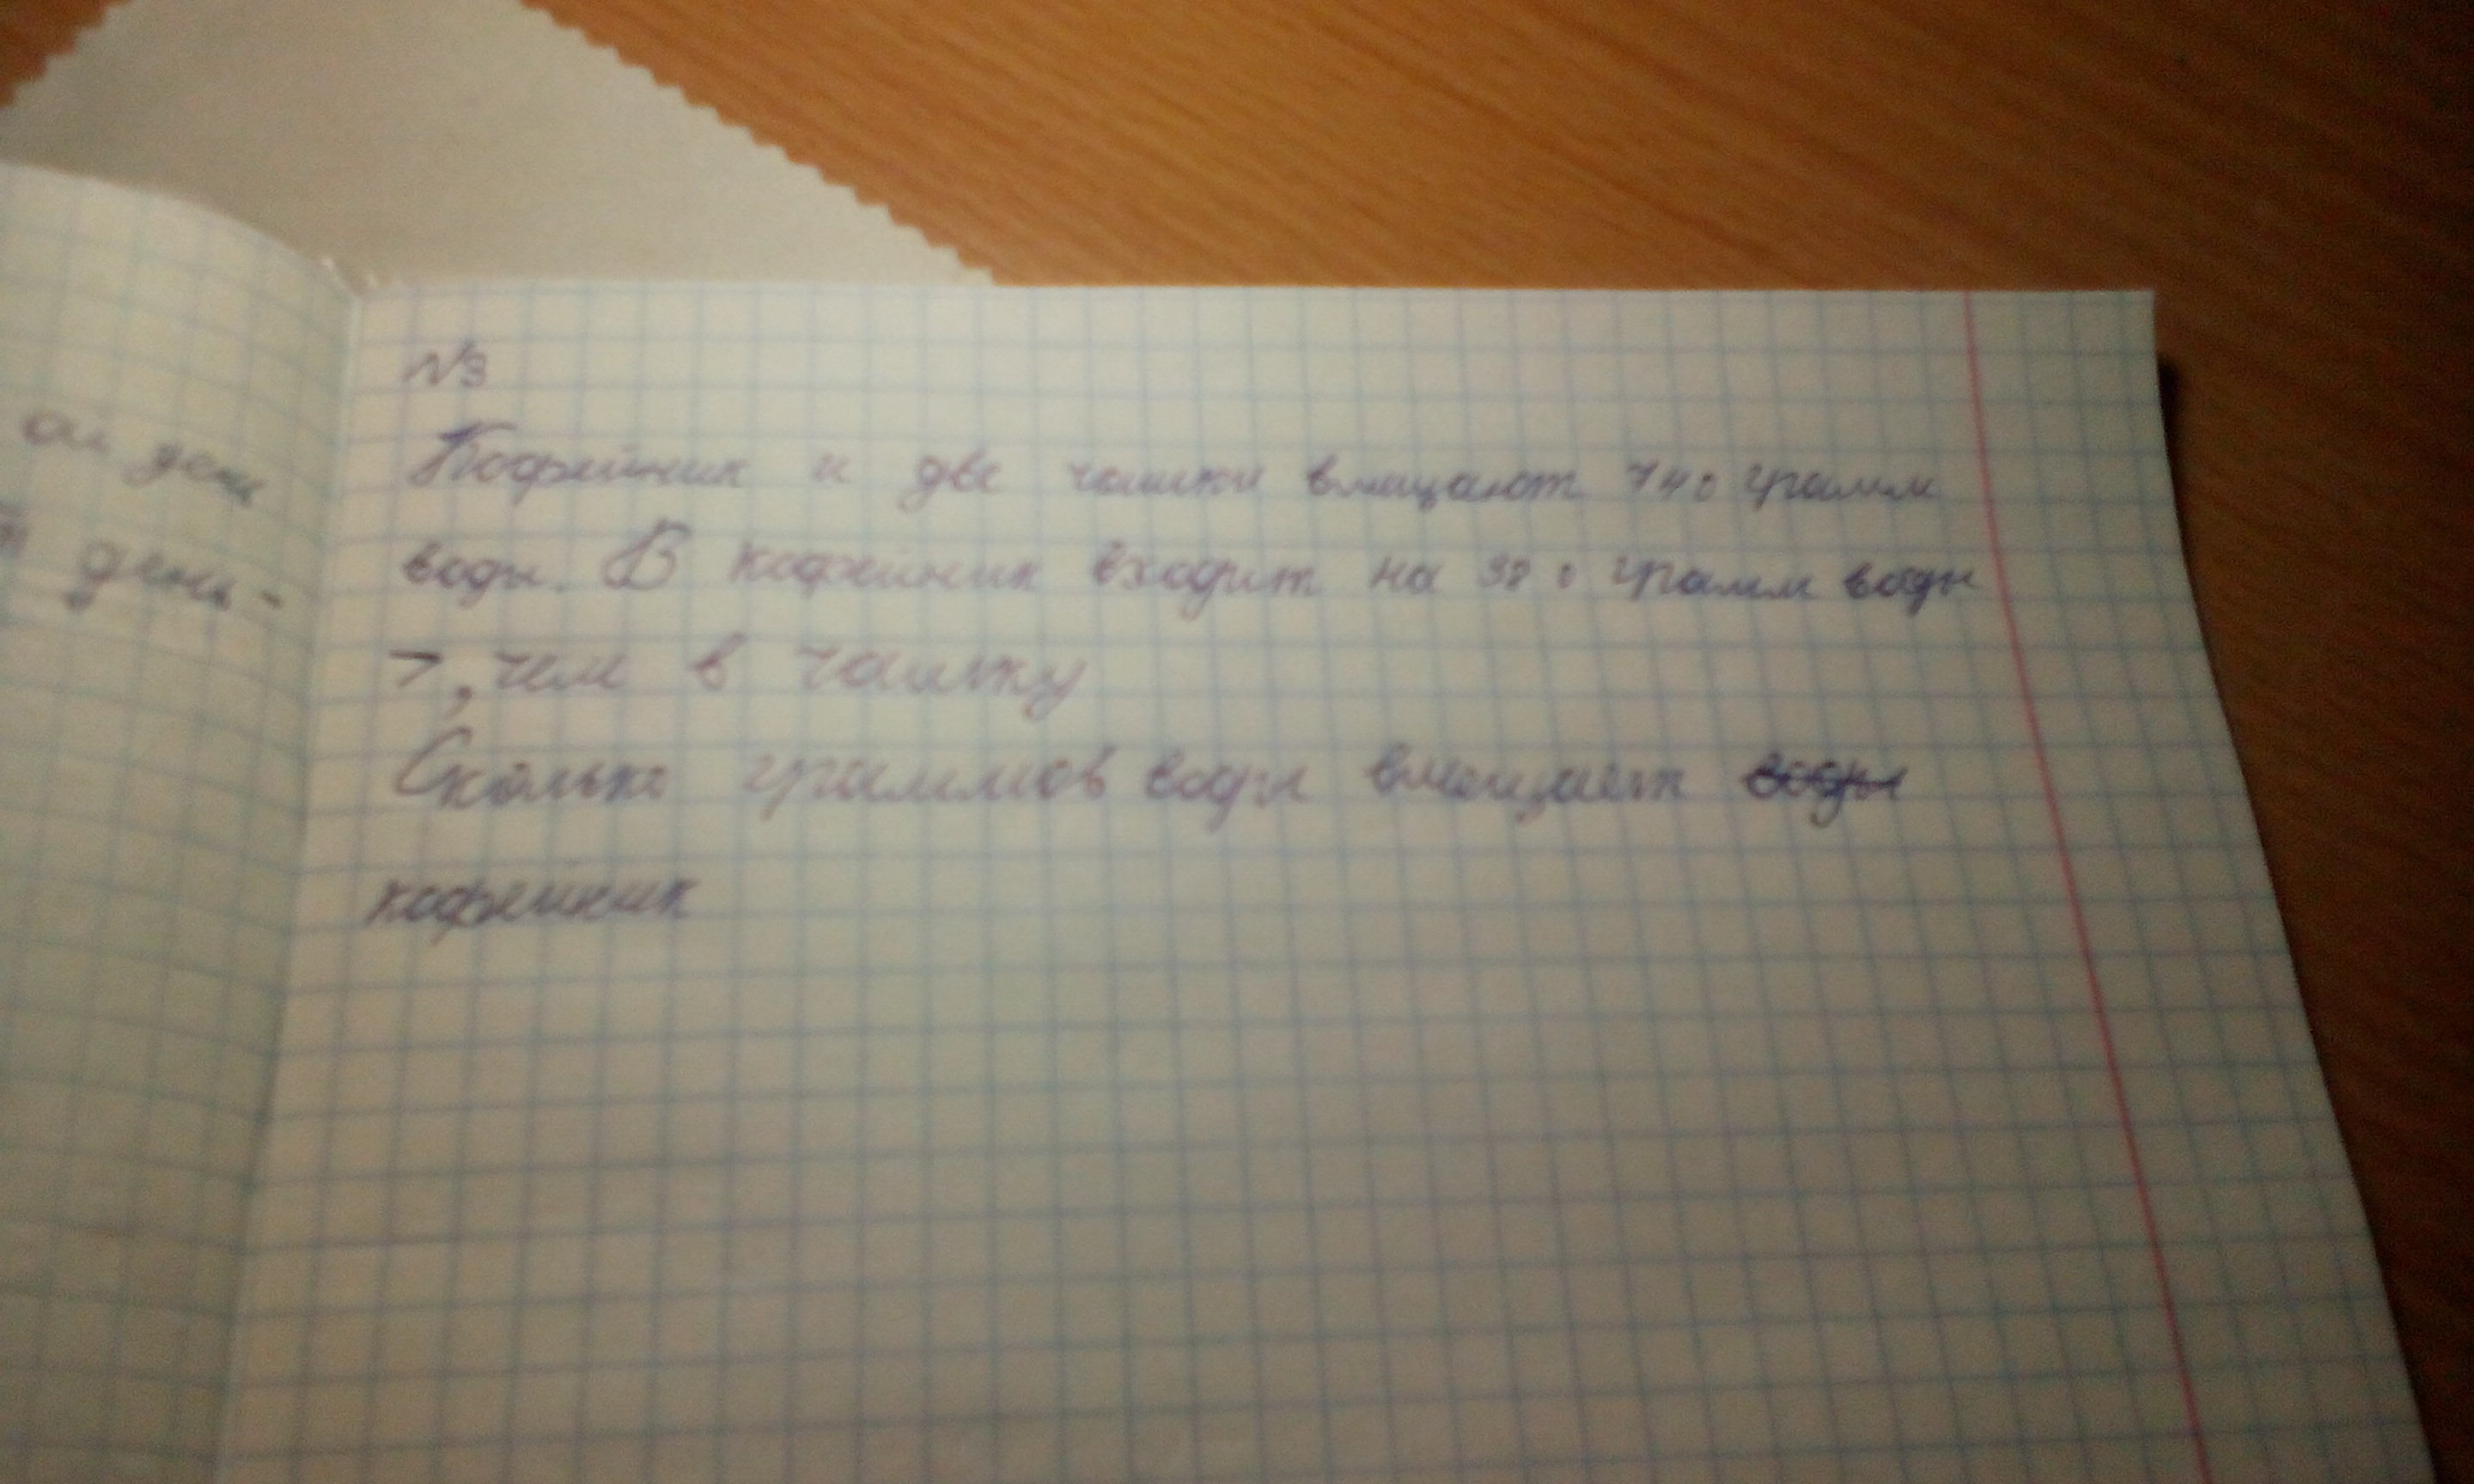 ой день
й день-
№3
Кофейник и две чашки вмещают 740 грамм
воды. В кофейник входит на 380 грамм воды
>, чем в чашку
Сколько граммов воды вмещает воды
кофейник